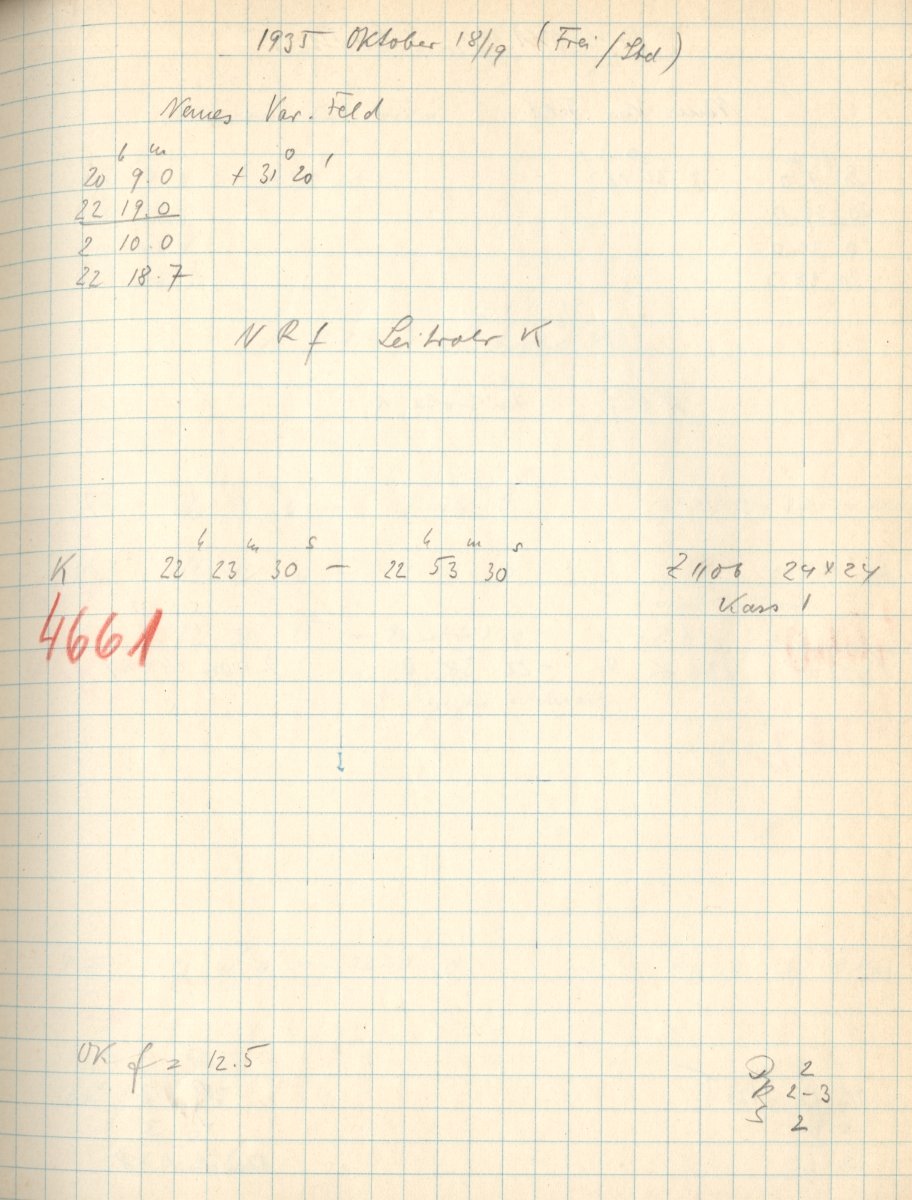 1935 Oktober 18/19 (Frei/Sbd)
Neues Var. Feld
20 h 9 m .0 + 31° 20'
22 19.0
2 10.0
22 18.7
N R f Leitrohr K
K 22 h 23 m 30 s – 22 h 53 m 30 s Z 1106 24x24
Kass 1
4661
OK f = 12.5
2
R 2-3
2